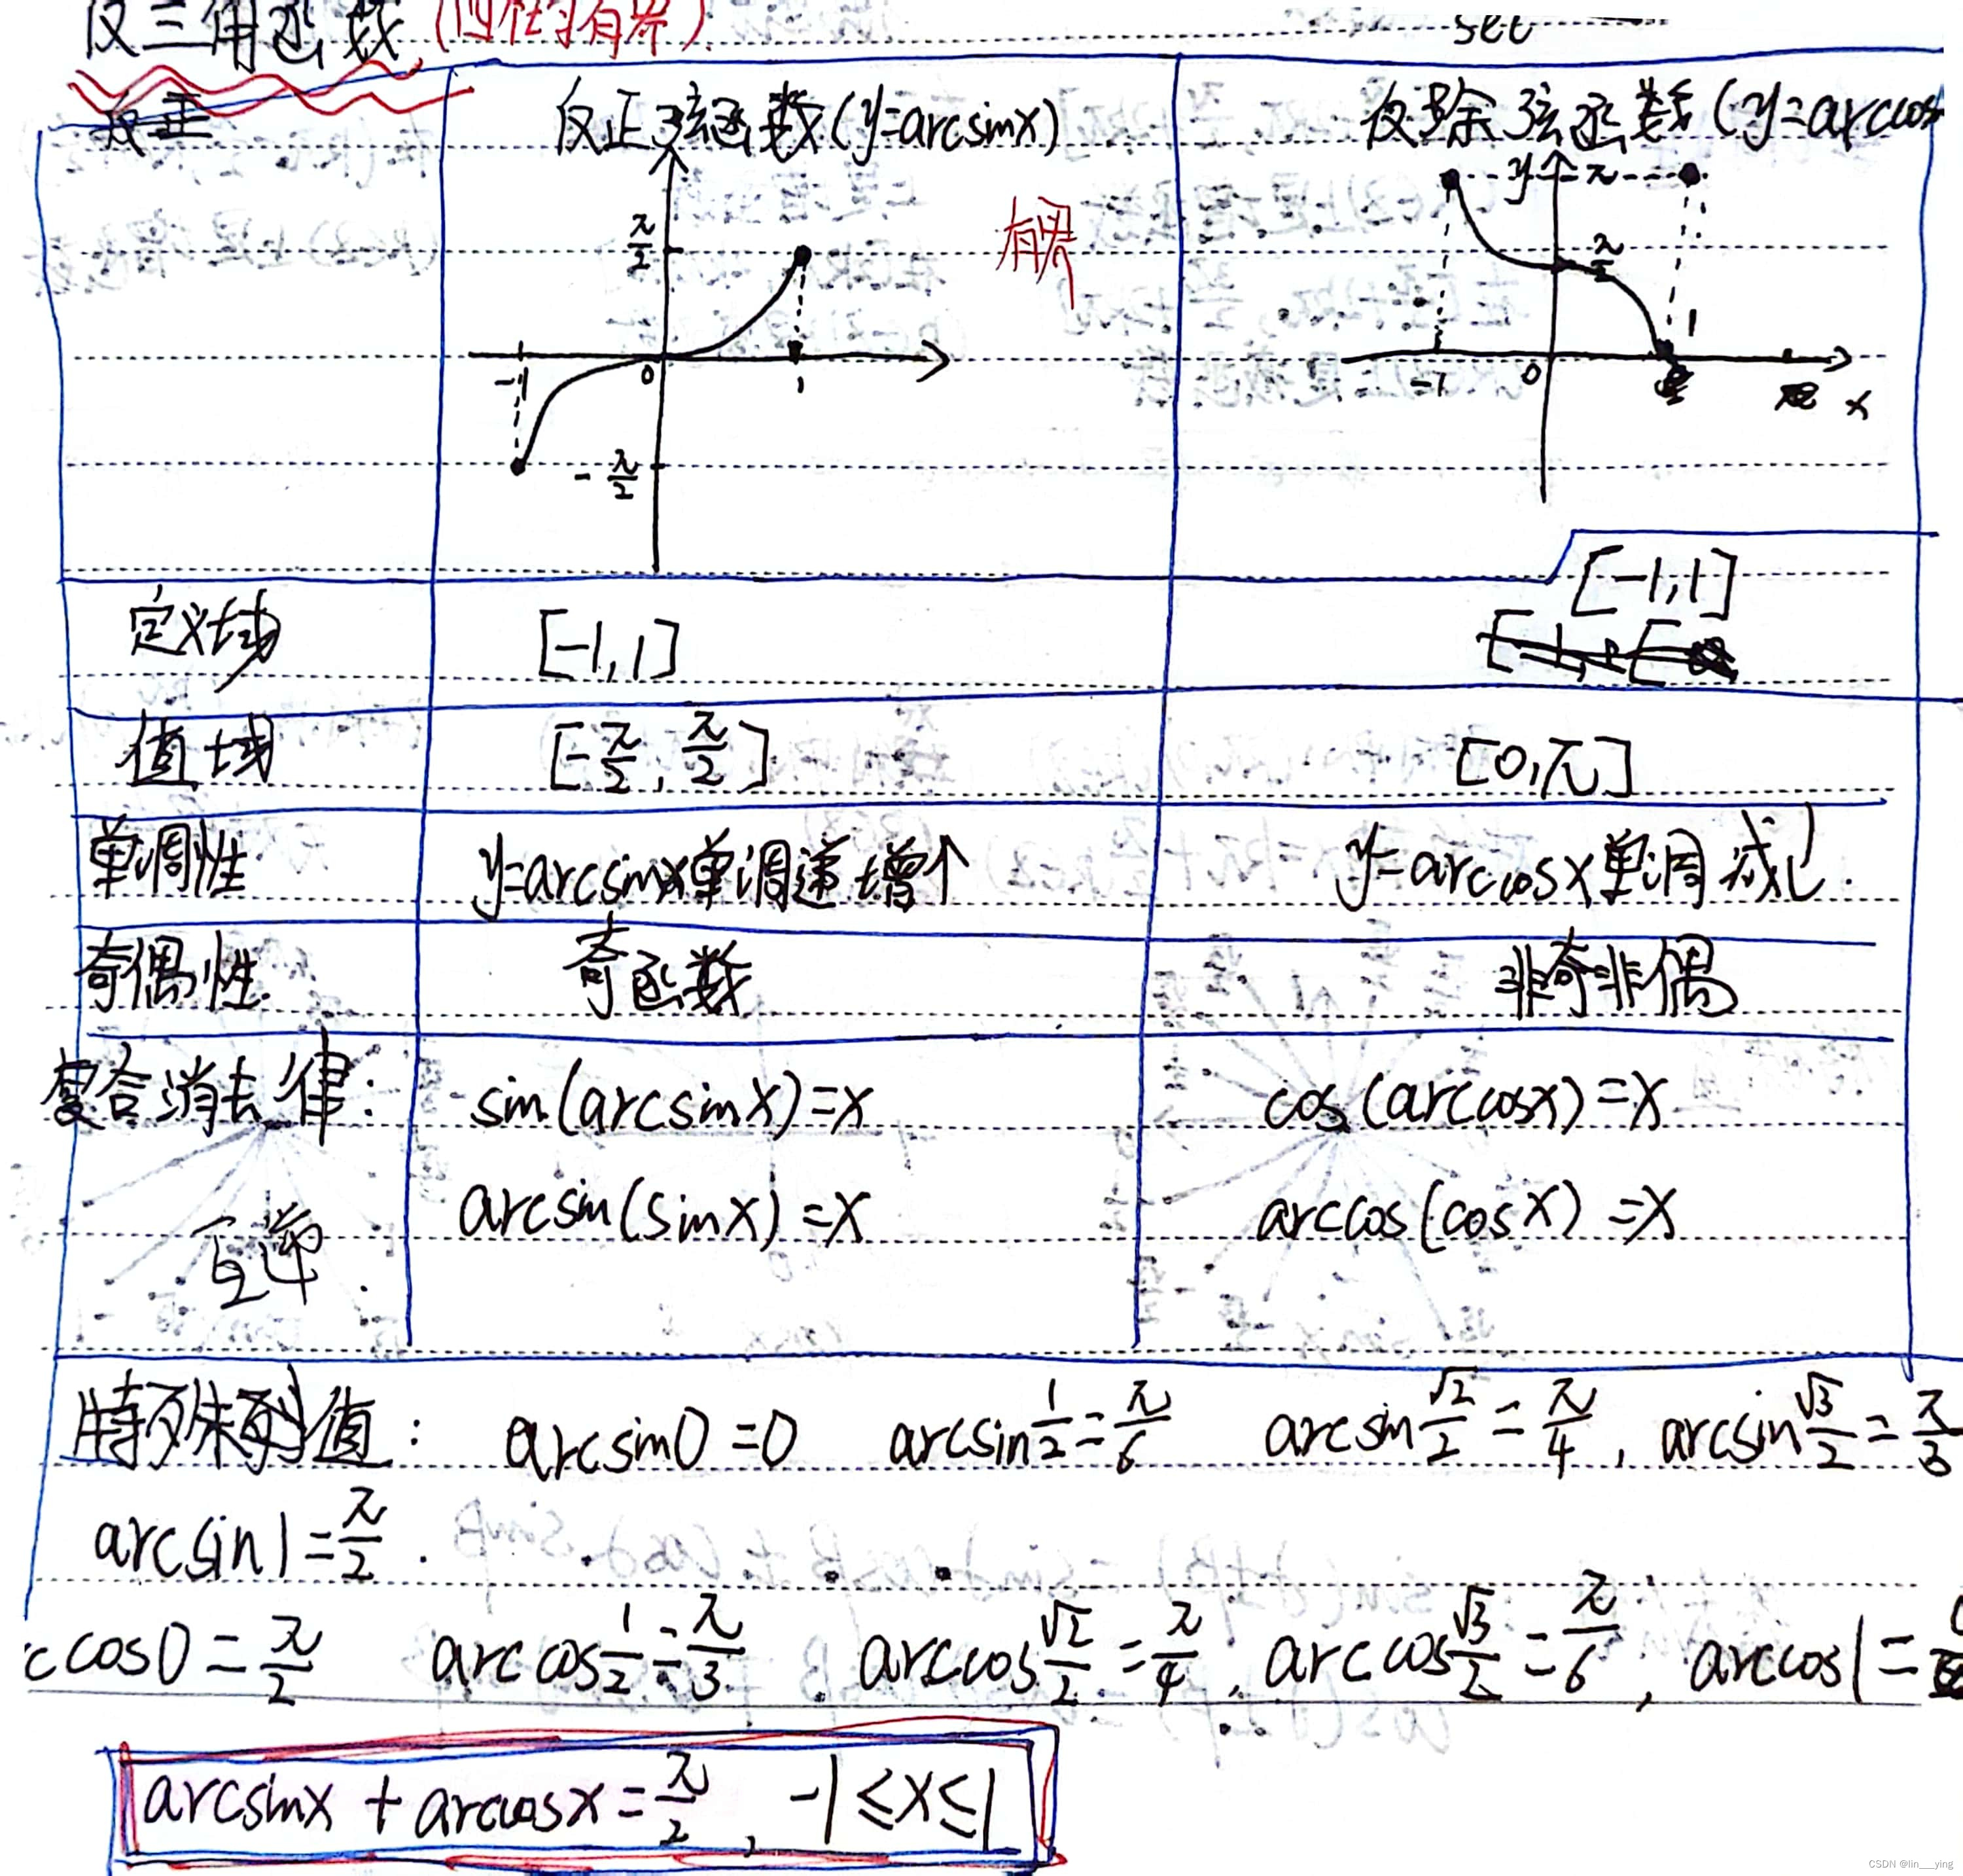 反三角函数(四个均有界)
反正
反正弦函数(y=arcsinx)
反余弦函数(y=arccos
有界
π/2
-1 0 1
-π/2
y π
π/2
1
-1 0 x
定义域 [-1,1] [-1,1]
值域 [-π/2, π/2] [0,π]
单调性 y=arcsinx单调递增↑ y=arccosx单调减↓.
奇偶性 奇函数 非奇非偶
复合消去律: sin(arcsinx)=x cos(arccosx)=x
互逆. arcsin(sinx)=x arccos(cosx)=x
特殊值: arcsin0=0 arcsin1/2=π/6 arcsin√2/2=π/4, arcsin√3/2=π/3
arcsin1=π/2.
ccos0=π/2 arccos1/2=π/3 arccos√2/2=π/4, arccos√3/2=π/6, arccos1=
arcsinx+arccosx=π/2, -1≤x≤1
CSDN @lin___ying